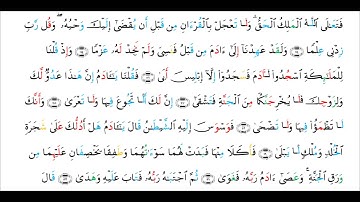 فَتَعَٰلَى ٱللَّهُ ٱلْمَلِكُ ٱلْحَقُّ ۗ وَلَا تَعْجَلْ بِٱلْقُرْءَانِ مِن قَبْلِ أَن يُقْضَىٰٓ إِلَيْكَ وَحْيُهُۥ ۖ وَقُل رَّبِّ
زِدْنِى عِلْمًا وَلَقَدْ عَهِدْنَآ إِلَىٰٓ ءَادَمَ مِن قَبْلُ فَنَسِىَ وَلَمْ نَجِدْ لَهُۥ عَزْمًا وَإِذْ قُلْنَا
لِلْمَلَٰٓئِكَةِ ٱسْجُدُوا۟ لِءَادَمَ فَسَجَدُوٓا۟ إِلَّآ إِبْلِيسَ أَبَىٰ فَقُلْنَا يَٰٓـَٔادَمُ إِنَّ هَٰذَا عَدُوٌّ لَّكَ
وَلِزَوْجِكَ فَلَا يُخْرِجَنَّكُمَا مِنَ ٱلْجَنَّةِ فَتَشْقَىٰٓ إِنَّ لَكَ أَلَّا تَجُوعَ فِيهَا وَلَا تَعْرَىٰ وَأَنَّكَ
لَا تَظْمَؤُا۟ فِيهَا وَلَا تَضْحَىٰ فَوَسْوَسَ إِلَيْهِ ٱلشَّيْطَٰنُ قَالَ يَٰٓـَٔادَمُ هَلْ أَدُلُّكَ عَلَىٰ شَجَرَةِ
ٱلْخُلْدِ وَمُلْكٍ لَّا يَبْلَىٰ فَأَكَلَا مِنْهَا فَبَدَتْ لَهُمَا سَوْءَٰتُهُمَا وَطَفِقَا يَخْصِفَانِ عَلَيْهِمَا مِن
وَرَقِ ٱلْجَنَّةِ ۚ وَعَصَىٰٓ ءَادَمُ رَبَّهُۥ فَغَوَىٰ ثُمَّ ٱجْتَبَٰهُ رَبُّهُۥ فَتَابَ عَلَيْهِ وَهَدَىٰ قَالَ